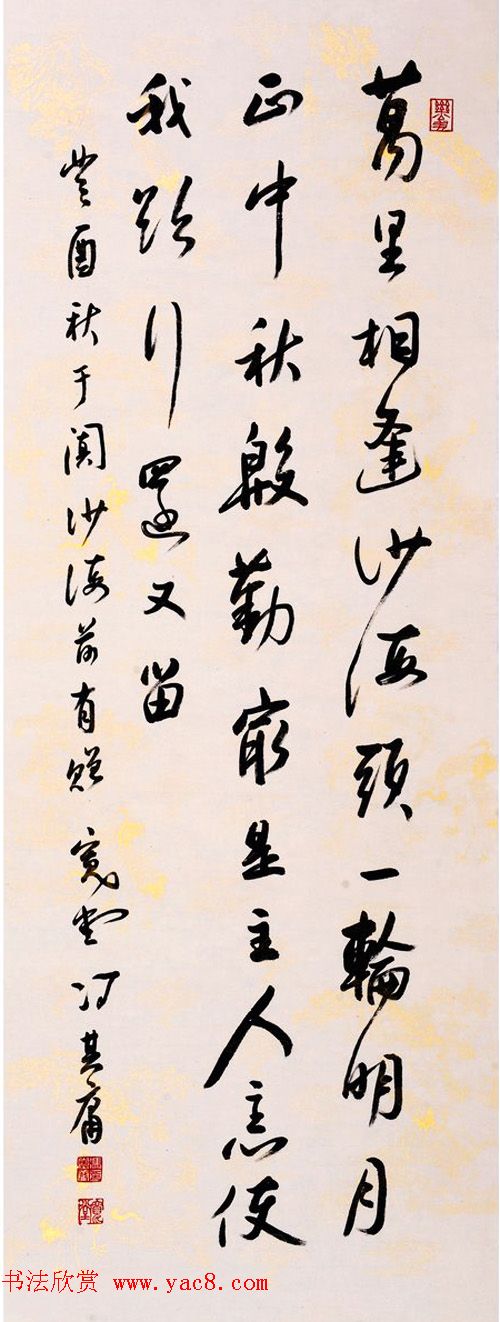 萬里相逢沙海頭一輪明月
正中秋殷勤最是主人意使
我欲行還又留
癸酉秋于闐沙海前有贈 寬堂馮其庸
书法欣赏 www.yac8.com